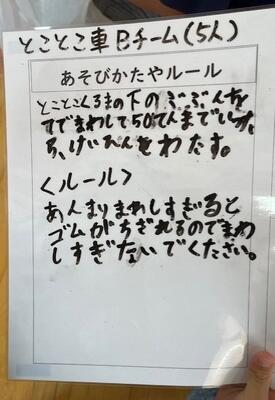 とことこ車Bチーム(5人)
あそびかたやルール
とことこくるまの下のぶぶんを
てでまわして50てんまでいった
ら、けいひんをわたす。
<ルール>
あんまりまわしすぎると
ゴムがちぎれるのでまわ
しすぎないでください。